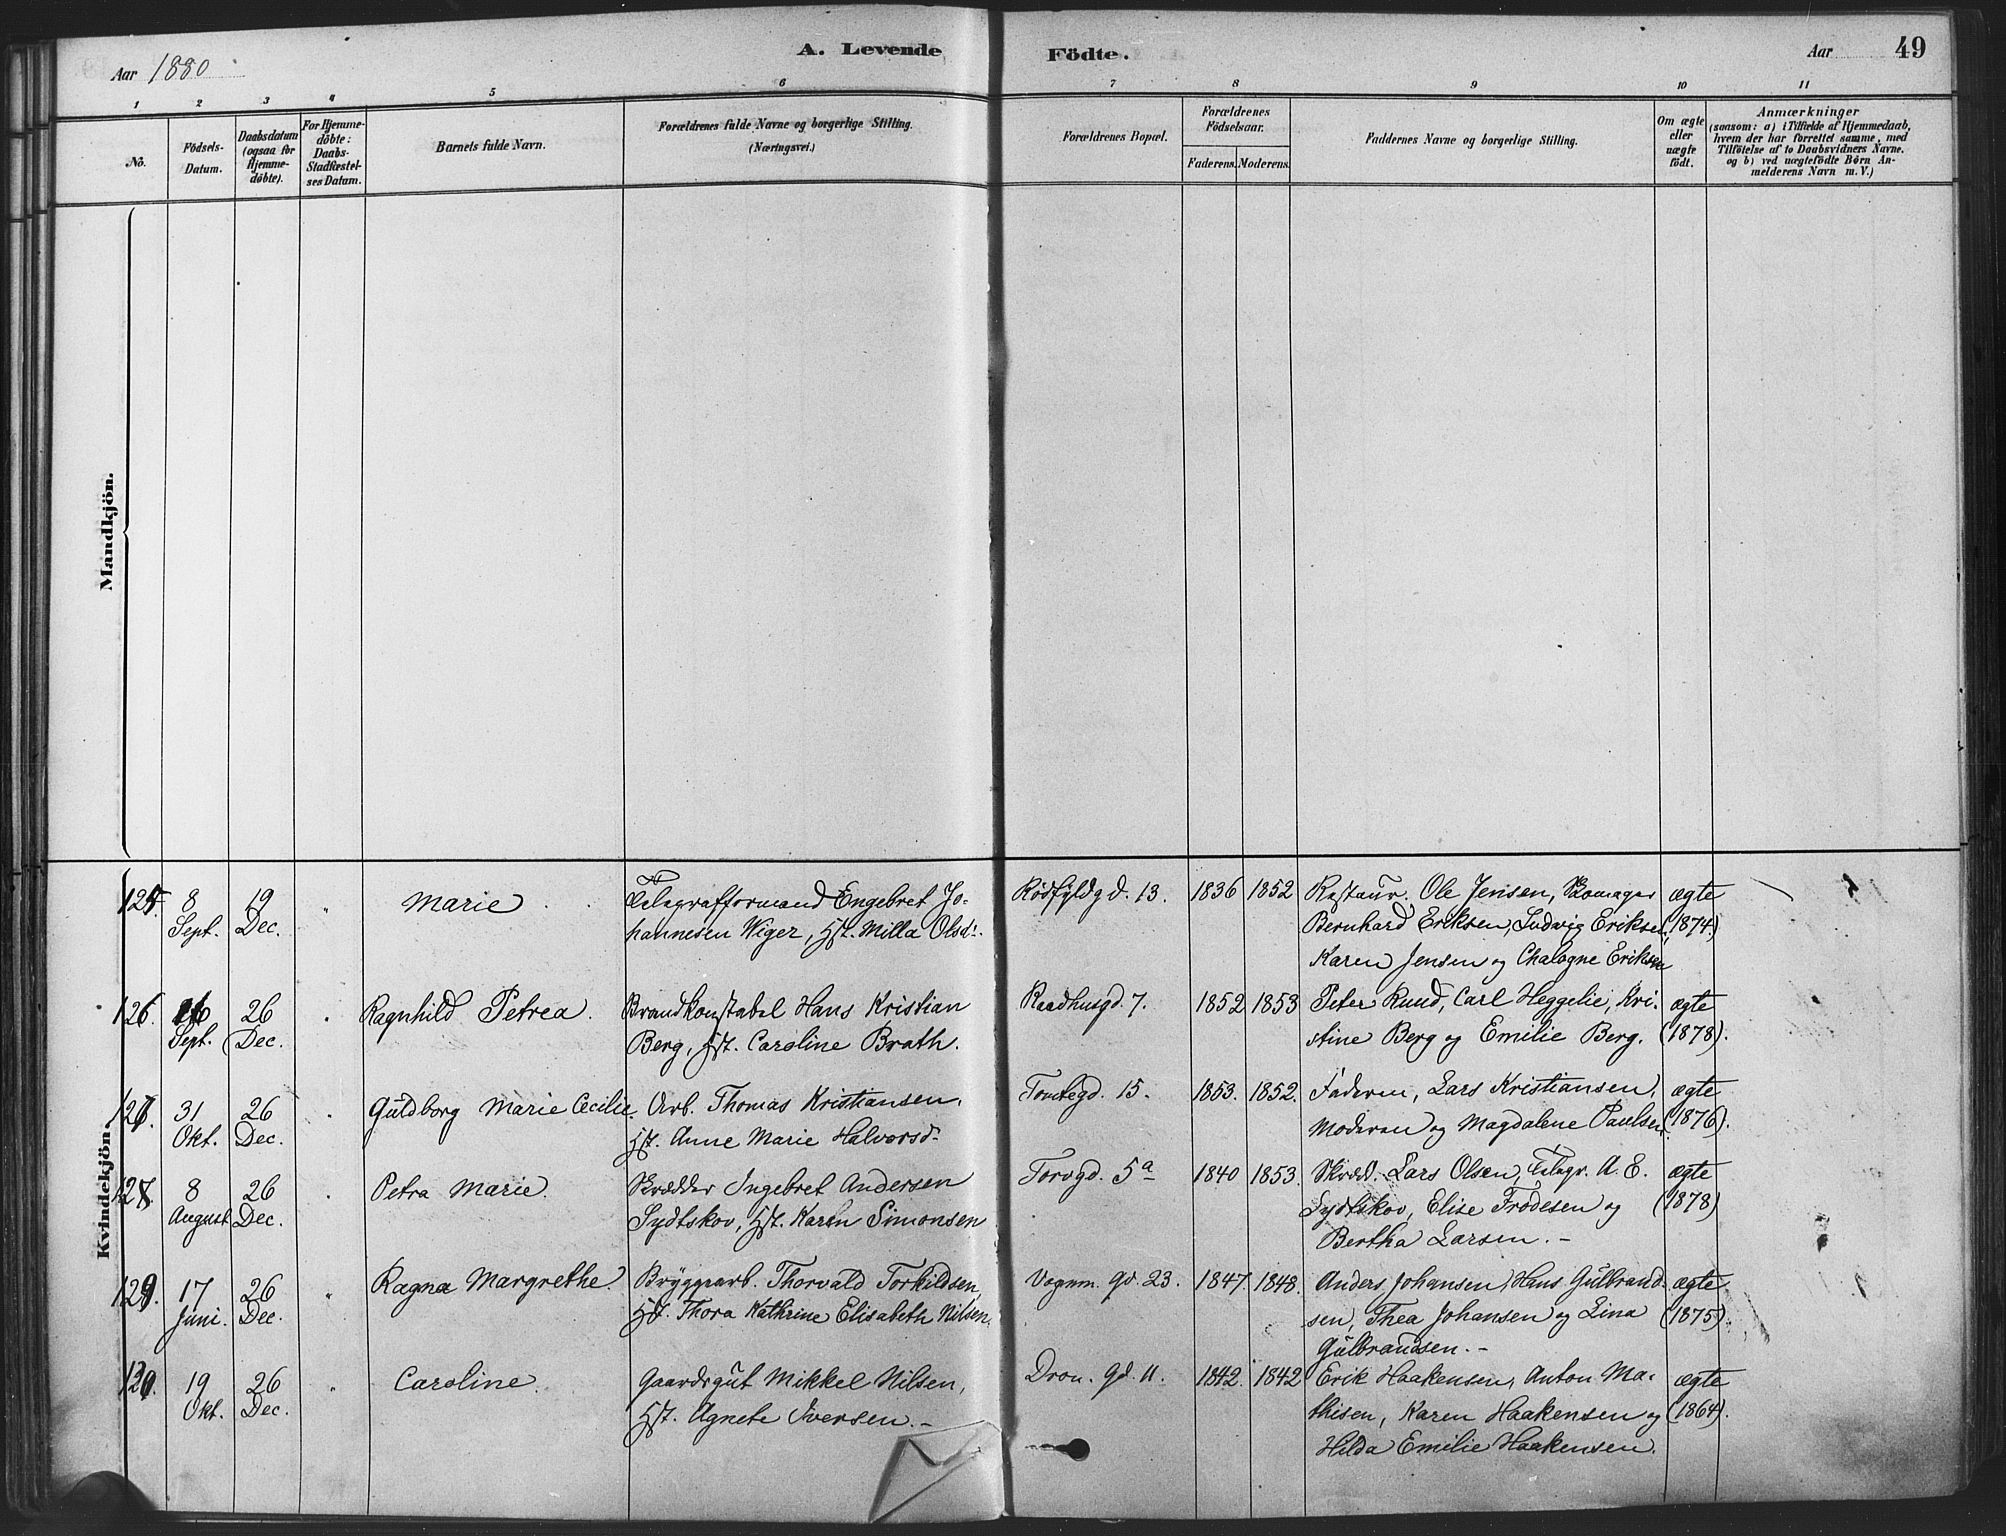 Aar 1880
A. Levende Födte.
Aar 49
1 2 3 4 5 6 7 8 9 10 11
No.
Födsels-
Datum.
Daabsdatum
(ogsaa for
Hjemme-
döbte).
For Hjemme-
döbte:
Daabs-
Stadfæstel-
ses Datum.
Barnets fulde Navn.
Forældrenes fulde Navne og borgerlige Stilling.
(Næringsvei.)
Forældrenes Bopæl.
Forældrenes
Födselsaar.
Faderens. Moderens.
Faddernes Navne og borgerlige Stilling.
Om ægte
eller
uægte
födt.
Anmærkninger
(saasom: a) i Tilfælde af Hjemmedaab,
hvem der har forrettet samme, med
Tilföielse af to Daabsvidners Navne.
og b) ved uægtefödte Börn An-
melderens Navn m. V.)
Mandkjön.
Kvindekjön.
125. 8 Sept. 19 Dec. " Marie
Telegrafformand Engebret Jo-
hannesen Wiger, Hst. Milla Olsdr.
Rødfyldgd. 13. 1836 1852
Restaur. Ole Jensen, Skomager
Bernhard Eriksen, Ludvig Eriksen,
Karen Jensen og Chalogne Eriksen
ægte
(1874.)
126. Sept. 26 Dec. " Ragnhild Petrea.
Brandkonstabel Hans Kristian
Berg, Hst. Caroline Brath.
Raadhusgd. 7. 1852 1853
Peter Ruud, Carl Heggelie, Kri-
stine Berg og Emilie Berg.
ægte
(1878).
127. 31 Okt. 26 Dec. " Guldborg Marie Cecilie.
Arb. Thomas Kristiansen,
Hst. Anne Marie Halvorsd.
Tomtegd. 15. 1853. 1852.
Faderen, Lars Kristiansen,
Moderen og Magdalene Paulsen.
ægte
(1876).
128. 8 August 26 Dec. " Petra Marie.
Skrædder Ingebret Andersen
Sydtskov, Hst. Karen Simonsen
Torvgd. 5a 1840 1853.
Skrædd. Lars Olsen, Telegr. A. E.
Sydtskov, Elise Frodesen og
Bertha Larsen. –
ægte
(1878)
129. 17 Juni. 26 Dec. " Ragna Margrethe.
Bryggearb. Thorvald Torkildsen,
Hst. Thora Kathrine Elisabeth Nilsen.
Vognm. gd. 23. 1847. 1848.
Anders Johansen, Hans Gulbrand-
sen, Thea Johansen og Lina
Gulbrandsen. –
ægte
(1875)
19 Okt. 26 Dec. " Caroline.
Gaardsgut Mikkel Nilsen,
Hst. Agnete Iversen. –
Dron. gd. 11. 1842. 1842
Erik Haakensen, Anton Ma-
thisen, Karen Haakensen og
Hilda Emilie Haakensen.
ægte
(1864).